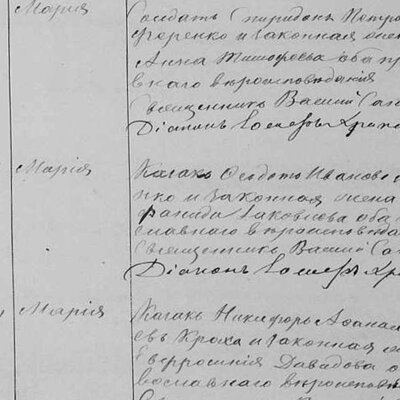 Мария
Солдатъ Спиридонъ Петро
и законная жена
Анна Тимофеева оба пр
внаго вѣроисповѣданія
Священникъ Василій
Діаконъ
Марія
Казакъ Ѳеодотъ Иванов
нко и законная жена
Яковлева оба
славнаго вѣроисповѣда
Священникъ Василій
Діаконъ
Марія
Казакъ Никифоръ Аѳанас
евъ Кроха и законная
Евфросинія Давидова о
вославнаго вѣроисповѣ